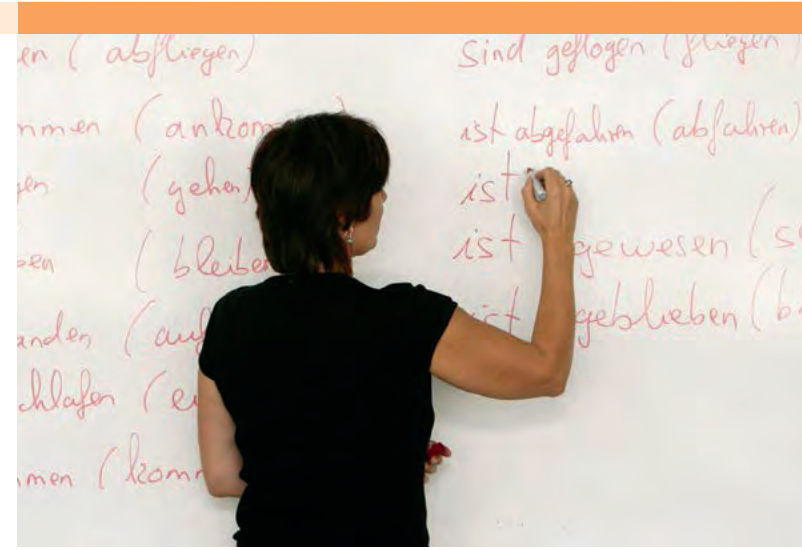 en (abfliegen)
mmen (ankom
gen (gehen)
ben (bleiben
anden (auf
chlafen (ei
mmen (komm
sind geflogen (fliegen)
ist abgefahren (abfahren)
ist
ist gewesen (s
ist geblieben (b